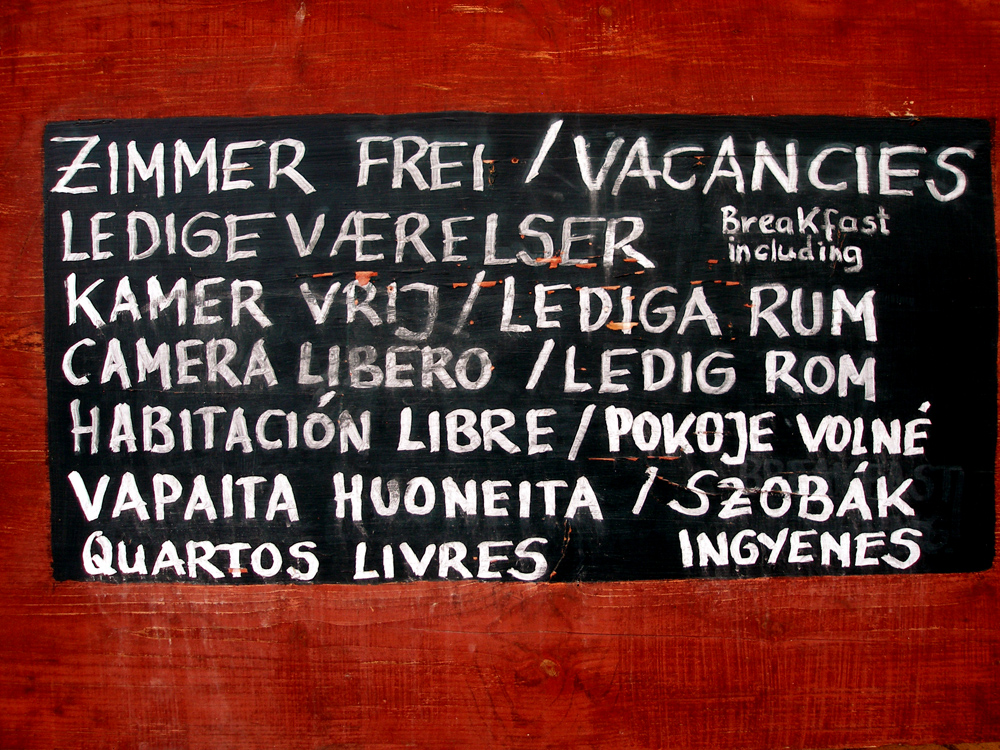 ZIMMER FREI / VACANCIES
LEDIGE VÆRELSER
Breakfast
including
KAMER VRIJ / LEDIGA RUM
CAMERA LIBERO / LEDIG ROM
HABITACIÓN LIBRE / POKOJE VOLNÉ
VAPAITA HUONEITA / SZOBÁK
QUARTOS LIVRES INGYENES